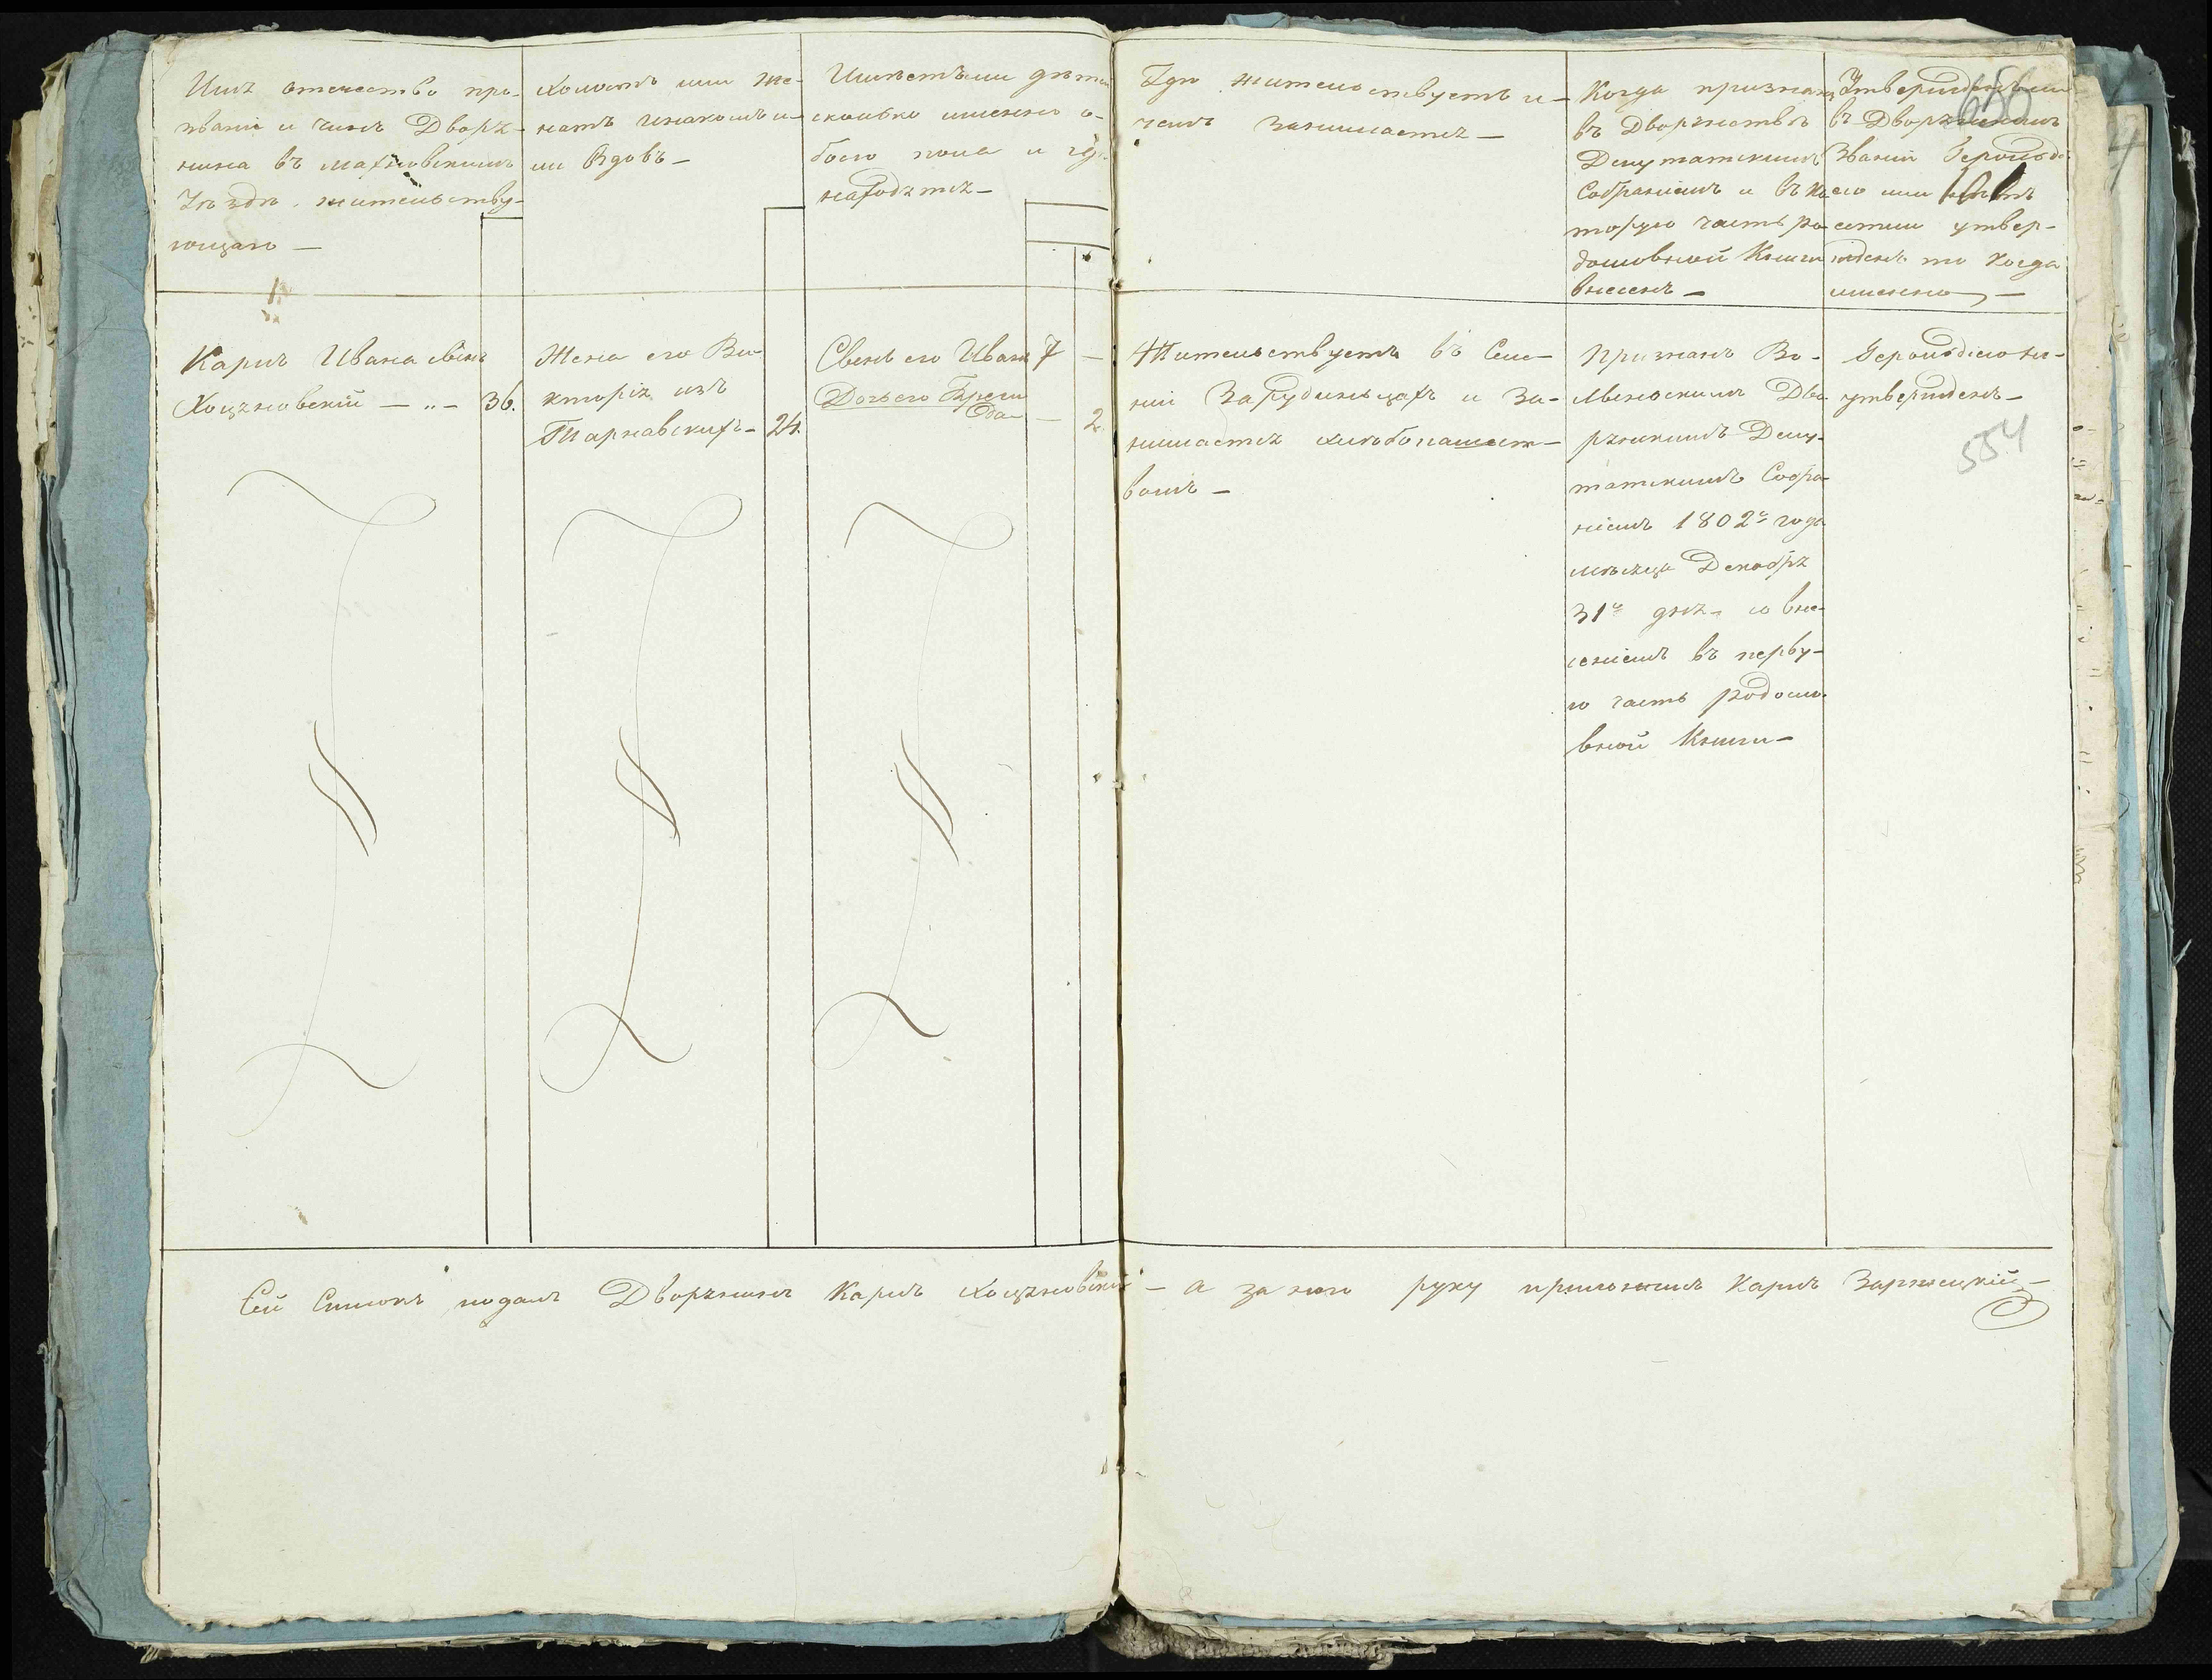 Имя отечество про-
званiе и чинъ Дворя-
нина въ Махновскомъ
Уѣздѣ жительству-
ющаго —
холостъ или же-
натъ и на комъ и-
ли вдовъ —
Имѣетъ ли дѣти
сколько именно о-
боего пола и гдѣ
находятся —
Где жительствуетъ и
чемъ занимается —
Когда признанъ
въ Дворянствѣ
Депутатскимъ
Собранiемъ и въ ко-
торую часть ро-
дословной Книги
внесенъ —
Утвержденъ ли
въ Дворянскомъ
Званiи Герольдi-
ею или нѣтъ
естли утвер-
жденъ то когда
именно —
656
Карлъ Ивана сынъ
Хоцяновскiй — „ — 36.
Жена его Ви-
кторiя изъ
Тарнавскихъ — 24.
Сынъ его Иванъ 7 —
Дочь его
— 2
Жительствуетъ въ Селе-
нiи Зарудинцахъ и за-
нимается хлѣбопашест-
вомъ —
Признанъ Во-
лынскимъ Дво-
рянскимъ Депу-
татскимъ Собра-
нiемъ 1802го года
мѣсяца Декабря
31го дня со вне-
сенiемъ въ перву-
ю часть родосло-
вной Книги —
Герольдiею не-
утвержденъ —
554
Сей Списокъ подалъ Дворянинъ Карлъ Хоцяновскiй — а за него руку приложилъ Карлъ